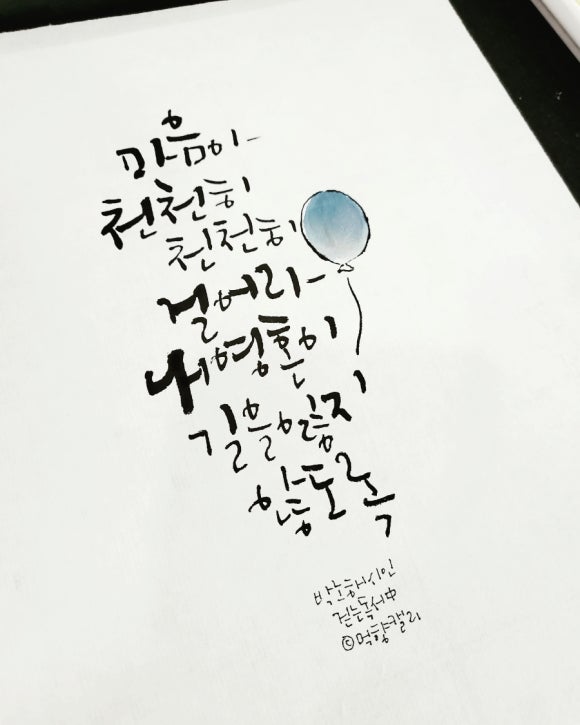 마음아
천천히
천천히
걸어라
내영혼이
길을잃지
않도록
박노해시인
걷는독서中
©먹향캘리